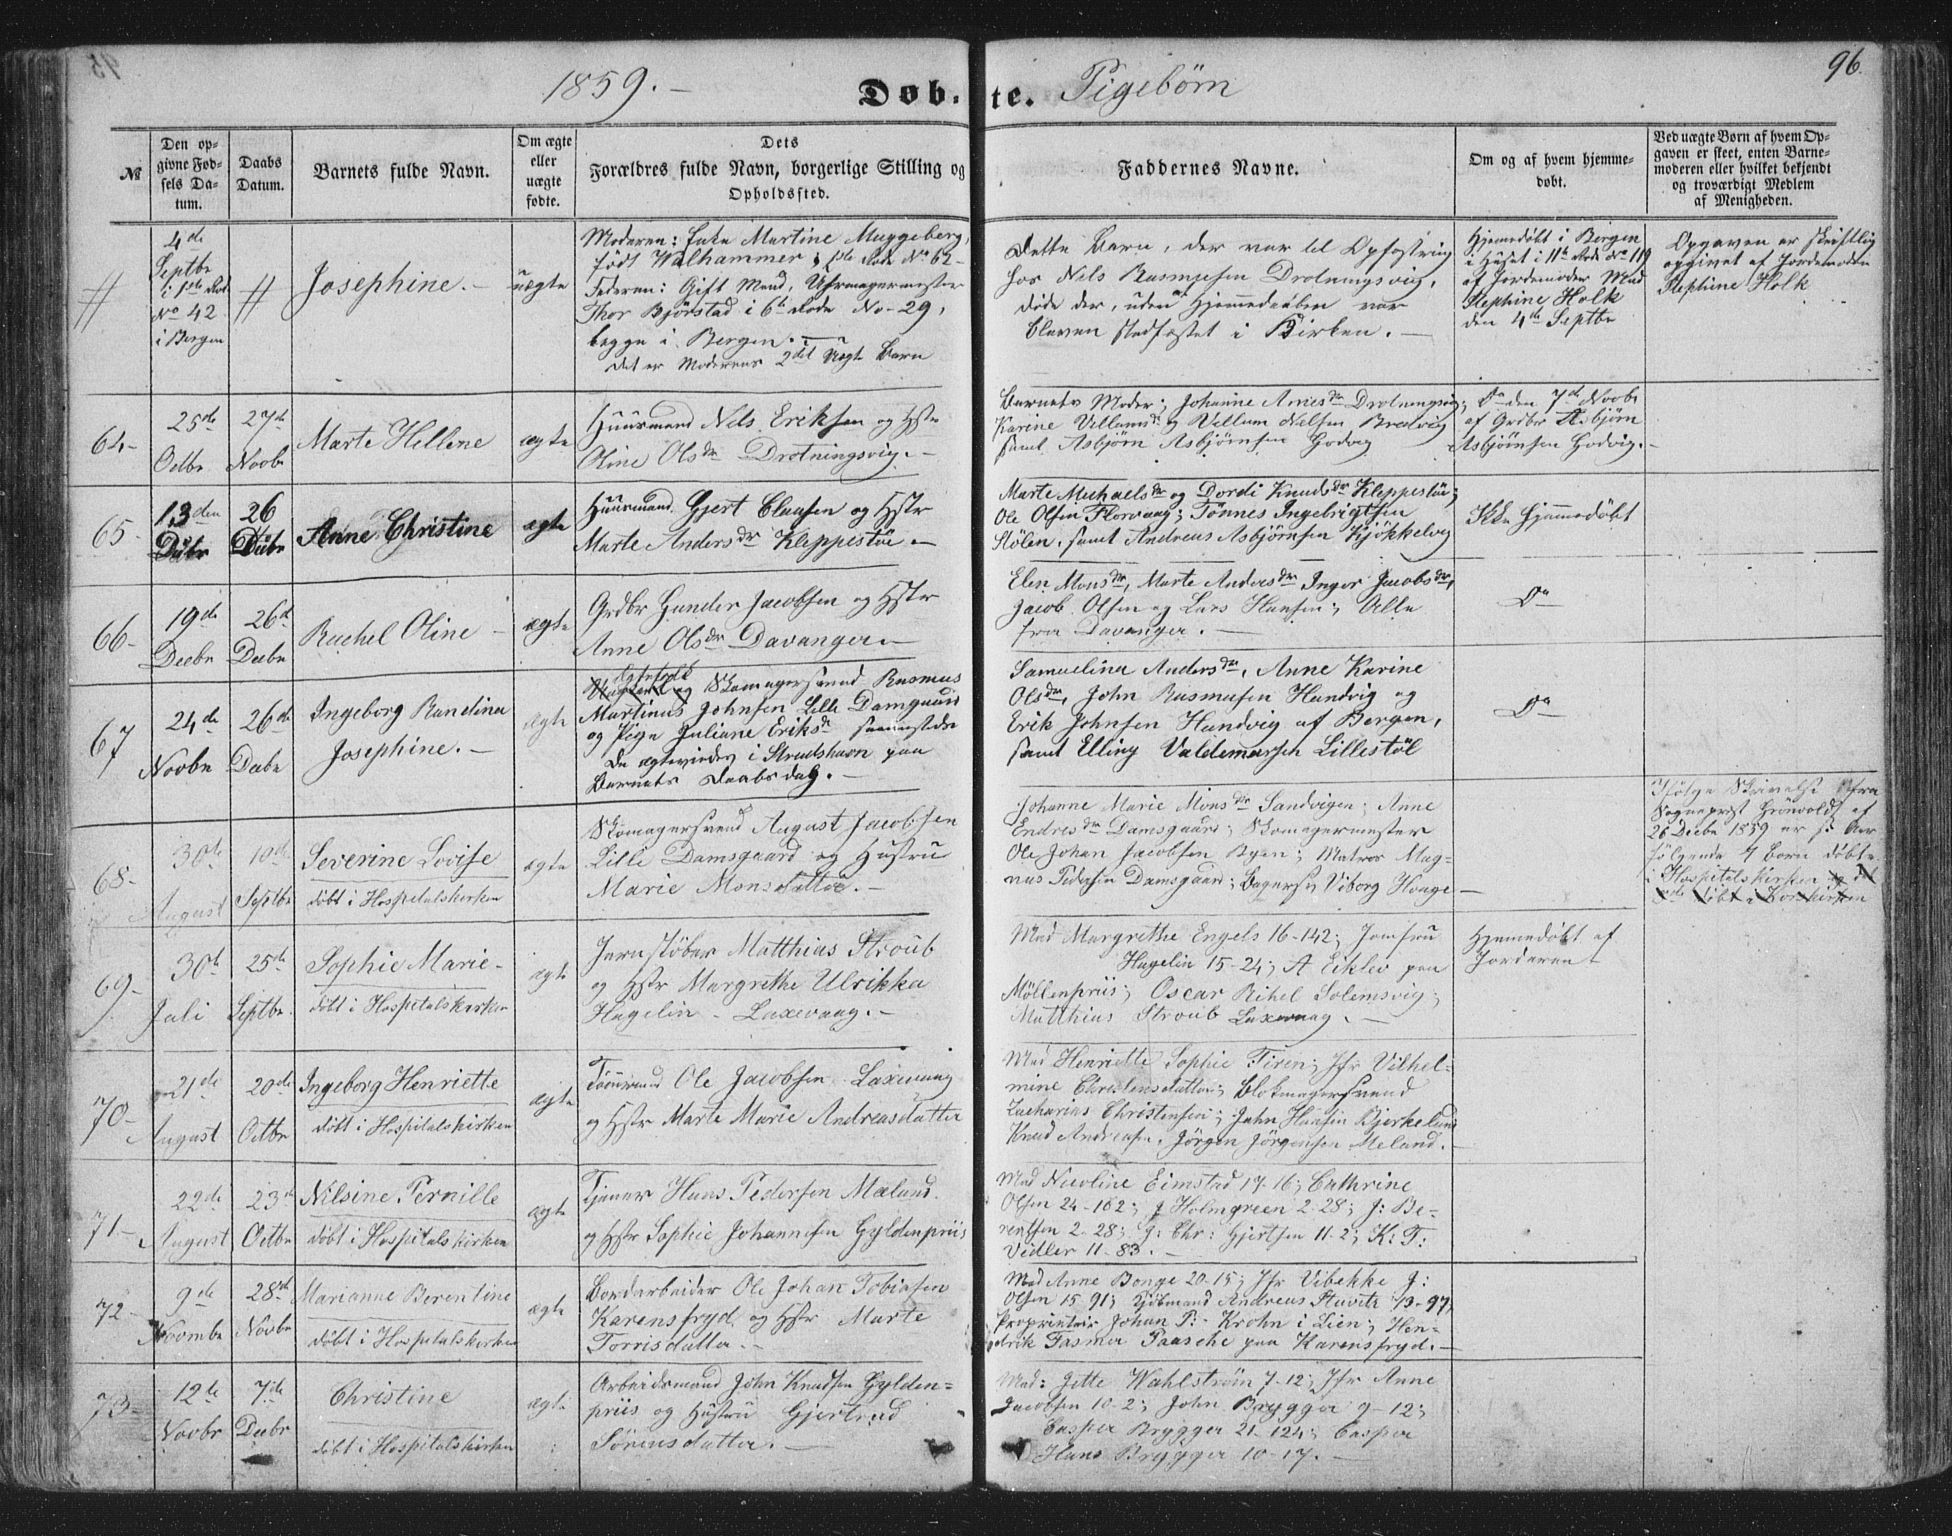 1859.-
Døb-te. Pigebørn
96.
№
Den op-
givne Fød-
sels Da-
tum.
Daabs
Datum.
Barnets fulde Navn.
Om ægte
eller
uægte
fødte.
Dets
Forældres fulde Navn, borgerlige Stilling og
Opholdssted.
Faddernes Navne.
Om og af hvem hjemme-
døbt.
Ved uægte Børn af hvem Op-
gaven er skeet, enten Barne-
moderen eller hvilket bekjendt
og troværdigt Medlem
af Menigheden.
#
4de
Septbr
i 1ste Rod
No 42
i Bergen
#
Josephine.-
uægte
Moderen: Enke Martine Muggeberg,
født Walhammer, 1ste Rode No 62-
Faderen: Gift Mand, Uhrmagermester
Thor Bjørstad i 6te Rode No-29,
begge i Bergen.-
Det er Moderens 2det uægte Barn
Dette Barn, der var til Opfostring
hos Nels Rasmussen Drotningsvig,
døde der, uden Hjemmedaaben var
bleven stadfæstet i Kirken.-
Hjemmedøbt i Bergen
i Huset i 11te Rode No 119
af Jordemoder Mad
Stephine Holk
den 4de Septbr
Opgaven er skriftlig
opgivet af Jordemoder
Stephine Holk
64-
25de
Octbr
27de
Novbr
Marte Hellene
ægte
Huusmand Nels Eriksen og Hstr
Oline Olsdr Drotningsvig.-
Barnets Moder; Johanne Arnesdr Drotningsvig;
Karine Villumsdr og Villum Nelsen Bredvig
samt Asbjørn Asbjørnsen Godvig
Do den 7de Novbr
af Grdbr Asbjørn
Asbjørnsen Godvig.-
65-
13den
Decbr
26
Decbr
Anne Christine
ægte
Huusmand Gjert Clausen og Hstr
Marte Andersdr Kleppestøe.-
Marte Michaelsdr og Dordi Knudsdr Kleppestøe;
Ole Olsen Florvaag; Tønnes Ingebrigtsen
Stølen, samt Andreas Asbjørnsen Kjøkkelvig
Ikke hjemmedøbt
66-
19de
Decbr
26d
Decbr
Rachel Oline-
ægte
Grdbr Gunder Jacobsen og Hstr
Anne Olsdr Davanger.-
Elen Monsdr, Marte Andersdr Inger Jacobsdr,
Jacob Olsen og Lars Hansen; Alle
fra Davanger.-
Do
67
24de
Novbr
26de
Decbr
Ingeborg Randina
Josephine.-
ægte
Skomagersvend Rasmus
Martinus Johnsen Lille Damgaard
og Pige Juliane Eriksdr sammesteds
De ægteviedes i Strudshavn paa
Barnets Daabsdag.-
Samuelina Andersdr, Anne Karine
Olsdr, John Rasmusen Hundvig og
Erik Johnsen Hundvig af Bergen,
samt Elling Valdemarsen Lillestøl
Do
68-
30te
August
10de
Septbr
Severine Lovise
døbt i Hospitalskirken
ægte
Skomagersvend August Jacobsen
Lille Damsgaard og Hustru
Marie Monsdatter.-
Johanne Marie Monsdr Sandvigen; Anne
Endresdr Damsgaard; Skomagermester
Ole Johan Jacobsen Byen; Matros Mag-
nus Pedersen Damsgaard; Bagersv Viborg Hauge-
Ifølge Skrivelse fra
Sogneprest Grönvold af
26 Decbr 1859 er de her
følgende 7 Børn døbte
i Hospitalskirken
69-
30te
Juli
25de
Septbr
Sophie Marie-
døbt i Hospitalskirken
ægte
Jernstøber Matthias Stroub
og Hstr Margrethe Ulrikka
Hagelin- Laxevaag.-
Mad Margrethe Engels 16-142; Jomfru
Hagelin 15-24; A Eiklev paa
Møllenpriis; Oscar Rihel Solemsvig;
Matthias Stroub Laxevaag.-
Hjemmedøbt af
Jordmoren
70-
21de
August
20de
Octbr
Ingeborg Henriette
døbt i Hospitalskirken
ægte
Tømmrmd Ole Jacobsen Laxevaag
og Hstr Marte Marie Andreasdatter
Mad Henriette Sophie Firen; Jfr Vilhel-
mine Christensdatter; Blokmagersvend
Zacharias Christensen; John Hansen Bjerkelund
Knud Andreasen, Jørgen Jørgensen Meland.-
71-
22de
August
23de
Octbr
Nilsine Pernille
døbt i Hospitalskirken
ægte
Tjener Hans Pedersen Mæland.
og Hstr Sophie Johannesen Gyldenpriis
Mad Nicoline Eimstad 17-16; Cathrine
Olsen 24-162; J Holmgreen 2-28; J: Be-
rentsen 2-28; G: Chr: Gjertsen 11-2; K: T:
Vedler 11-83.-
72-
9de
Novembr
28de
Novbr
Marianne Berentine
døbt i Hospitalskirken
ægte
Bordarbeider Ole Johan Tobiasen
Karensfryd og Hstr Marte
Torrisdatter.-
Mad Anne Bonge 20-15; Jfr Vibekke J:
Olsen 15-91; Kjøbmand Andreas Stuvitz 13-97;
Proprietair Johan P:- Krohn i Lien; Hen-
drik Fasmer Paasche paa Karensfryd.-
73-
12te
Novbr
7de
Decbr
Christine
døbt i Hospitalskirken
ægte
Arbeidsmand John Knudsen Gylden-
priis og Hustru Gjertrud
Sørensdatter.-
Mad: Jette Wahlstrøm 7-12; Jfr Anne
Jacobsen 10-2; John Brygger 9-12;
Casper Brygger 21-124; Casper
Hans Brygger 10-17.-